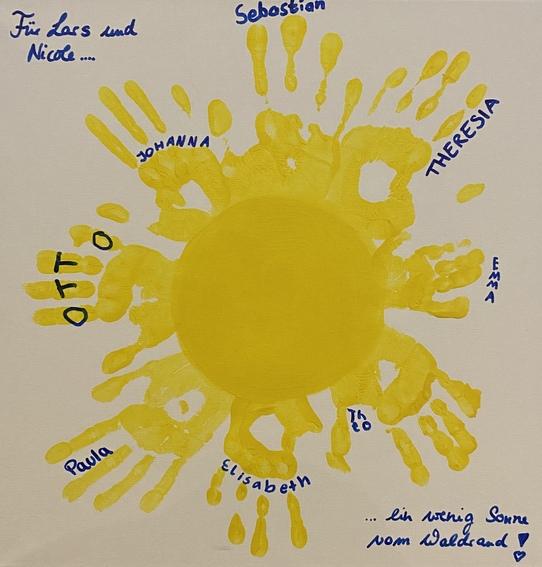 Für Lars und
Nicole....
Sebastian
JOHANNA
THERESIA
OTTO
EMMA
Th
eo
Paula
Elisabeth
... ein wenig Sonne
vom Waldrand!